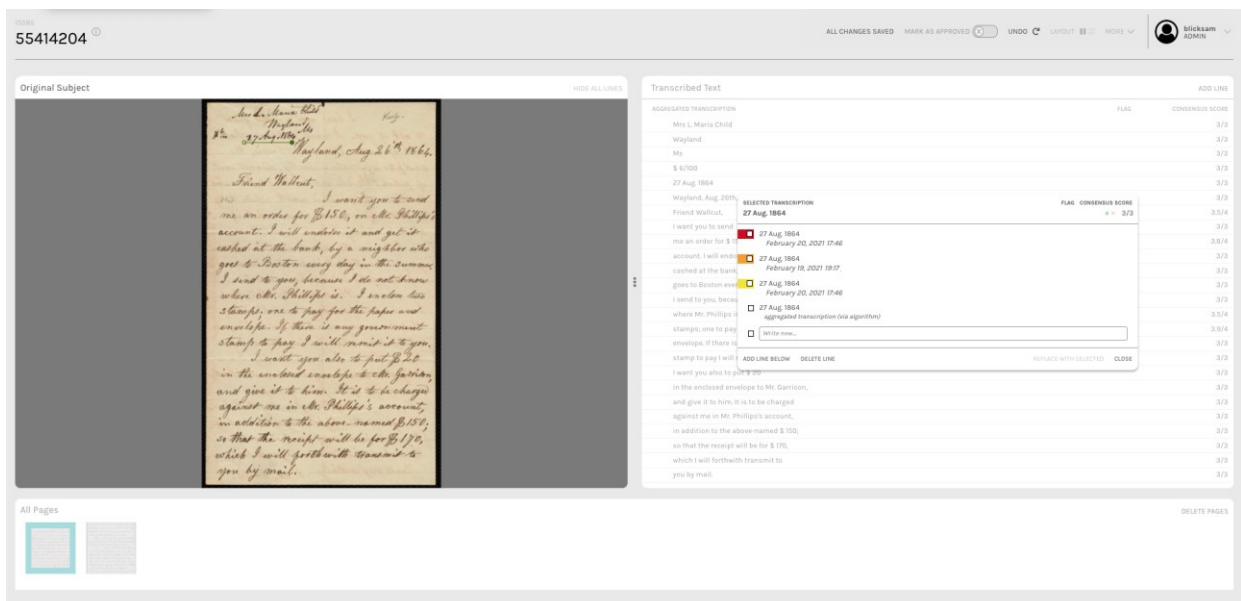 ISSBG
55414204
ALL CHANGES SAVED MARK AS APPROVED UNDO LAYOUT MORE
blicksam
ADMIN
Original Subject
HIDE ALL LINES
Mrs L. Maria Child
Wayland
Ms
27 Aug. 1864
Wayland, Aug. 26th 1864.
Friend Wallcut,
I want you to send
me an order for $150, on Mr. Phillips's
account. I will endorse it and get it
cashed at the bank, by a neighbor who
goes to Boston every day in the summer.
I send to you, because I do not know
where Mr. Phillips is. I enclose two
stamps; one to pay for the paper and
envelope. If there is any government
stamp to pay I will remit it to you.
I want you also to put $20
in the enclosed envelope to Mr. Garrison,
and give it to him. It is to be charged
against me in Mr. Phillips's account,
in addition to the above-named $150;
so that the receipt will be for $170,
which I will forthwith transmit to
you by mail.
Transcribed Text
ADD LINE
AGGREGATED TRANSCRIPTION FLAG CONSENSUS SCORE
Mrs L. Maria Child 3/3
Wayland 3/3
Ms 3/3
$ 6/100 3/3
27 Aug. 1864 3/3
Wayland, Aug. 26th, 3/3
Friend Wallcut, 3.5/4
I want you to send 3/3
me an order for $ 15 3.8/4
account. I will endo 3/3
cashed at the bank 3/3
goes to Boston eve 3/3
I send to you, becau 3/3
where Mr. Phillips i 3.5/4
stamps; one to pay 3.9/4
envelope. If there is 3/3
stamp to pay I will r 3/3
I want you also to put $ 20 3/3
in the enclosed envelope to Mr. Garrison, 3/3
and give it to him. It is to be charged 3/3
against me in Mr. Phillips's account, 3/3
in addition to the above-named $ 150; 3/3
so that the receipt will be for $ 170, 3/3
which I will forthwith transmit to 3/3
you by mail. 3/3
SELECTED TRANSCRIPTION FLAG CONSENSUS SCORE
27 Aug. 1864 3/3
27 Aug. 1864
February 20, 2021 17:46
27 Aug. 1864
February 19, 2021 19:17
27 Aug. 1864
February 20, 2021 17:46
27 Aug. 1864
aggregated transcription (via algorithm)
Write now...
ADD LINE BELOW DELETE LINE REPLACE WITH SELECTED CLOSE
All Pages
DELETE PAGES